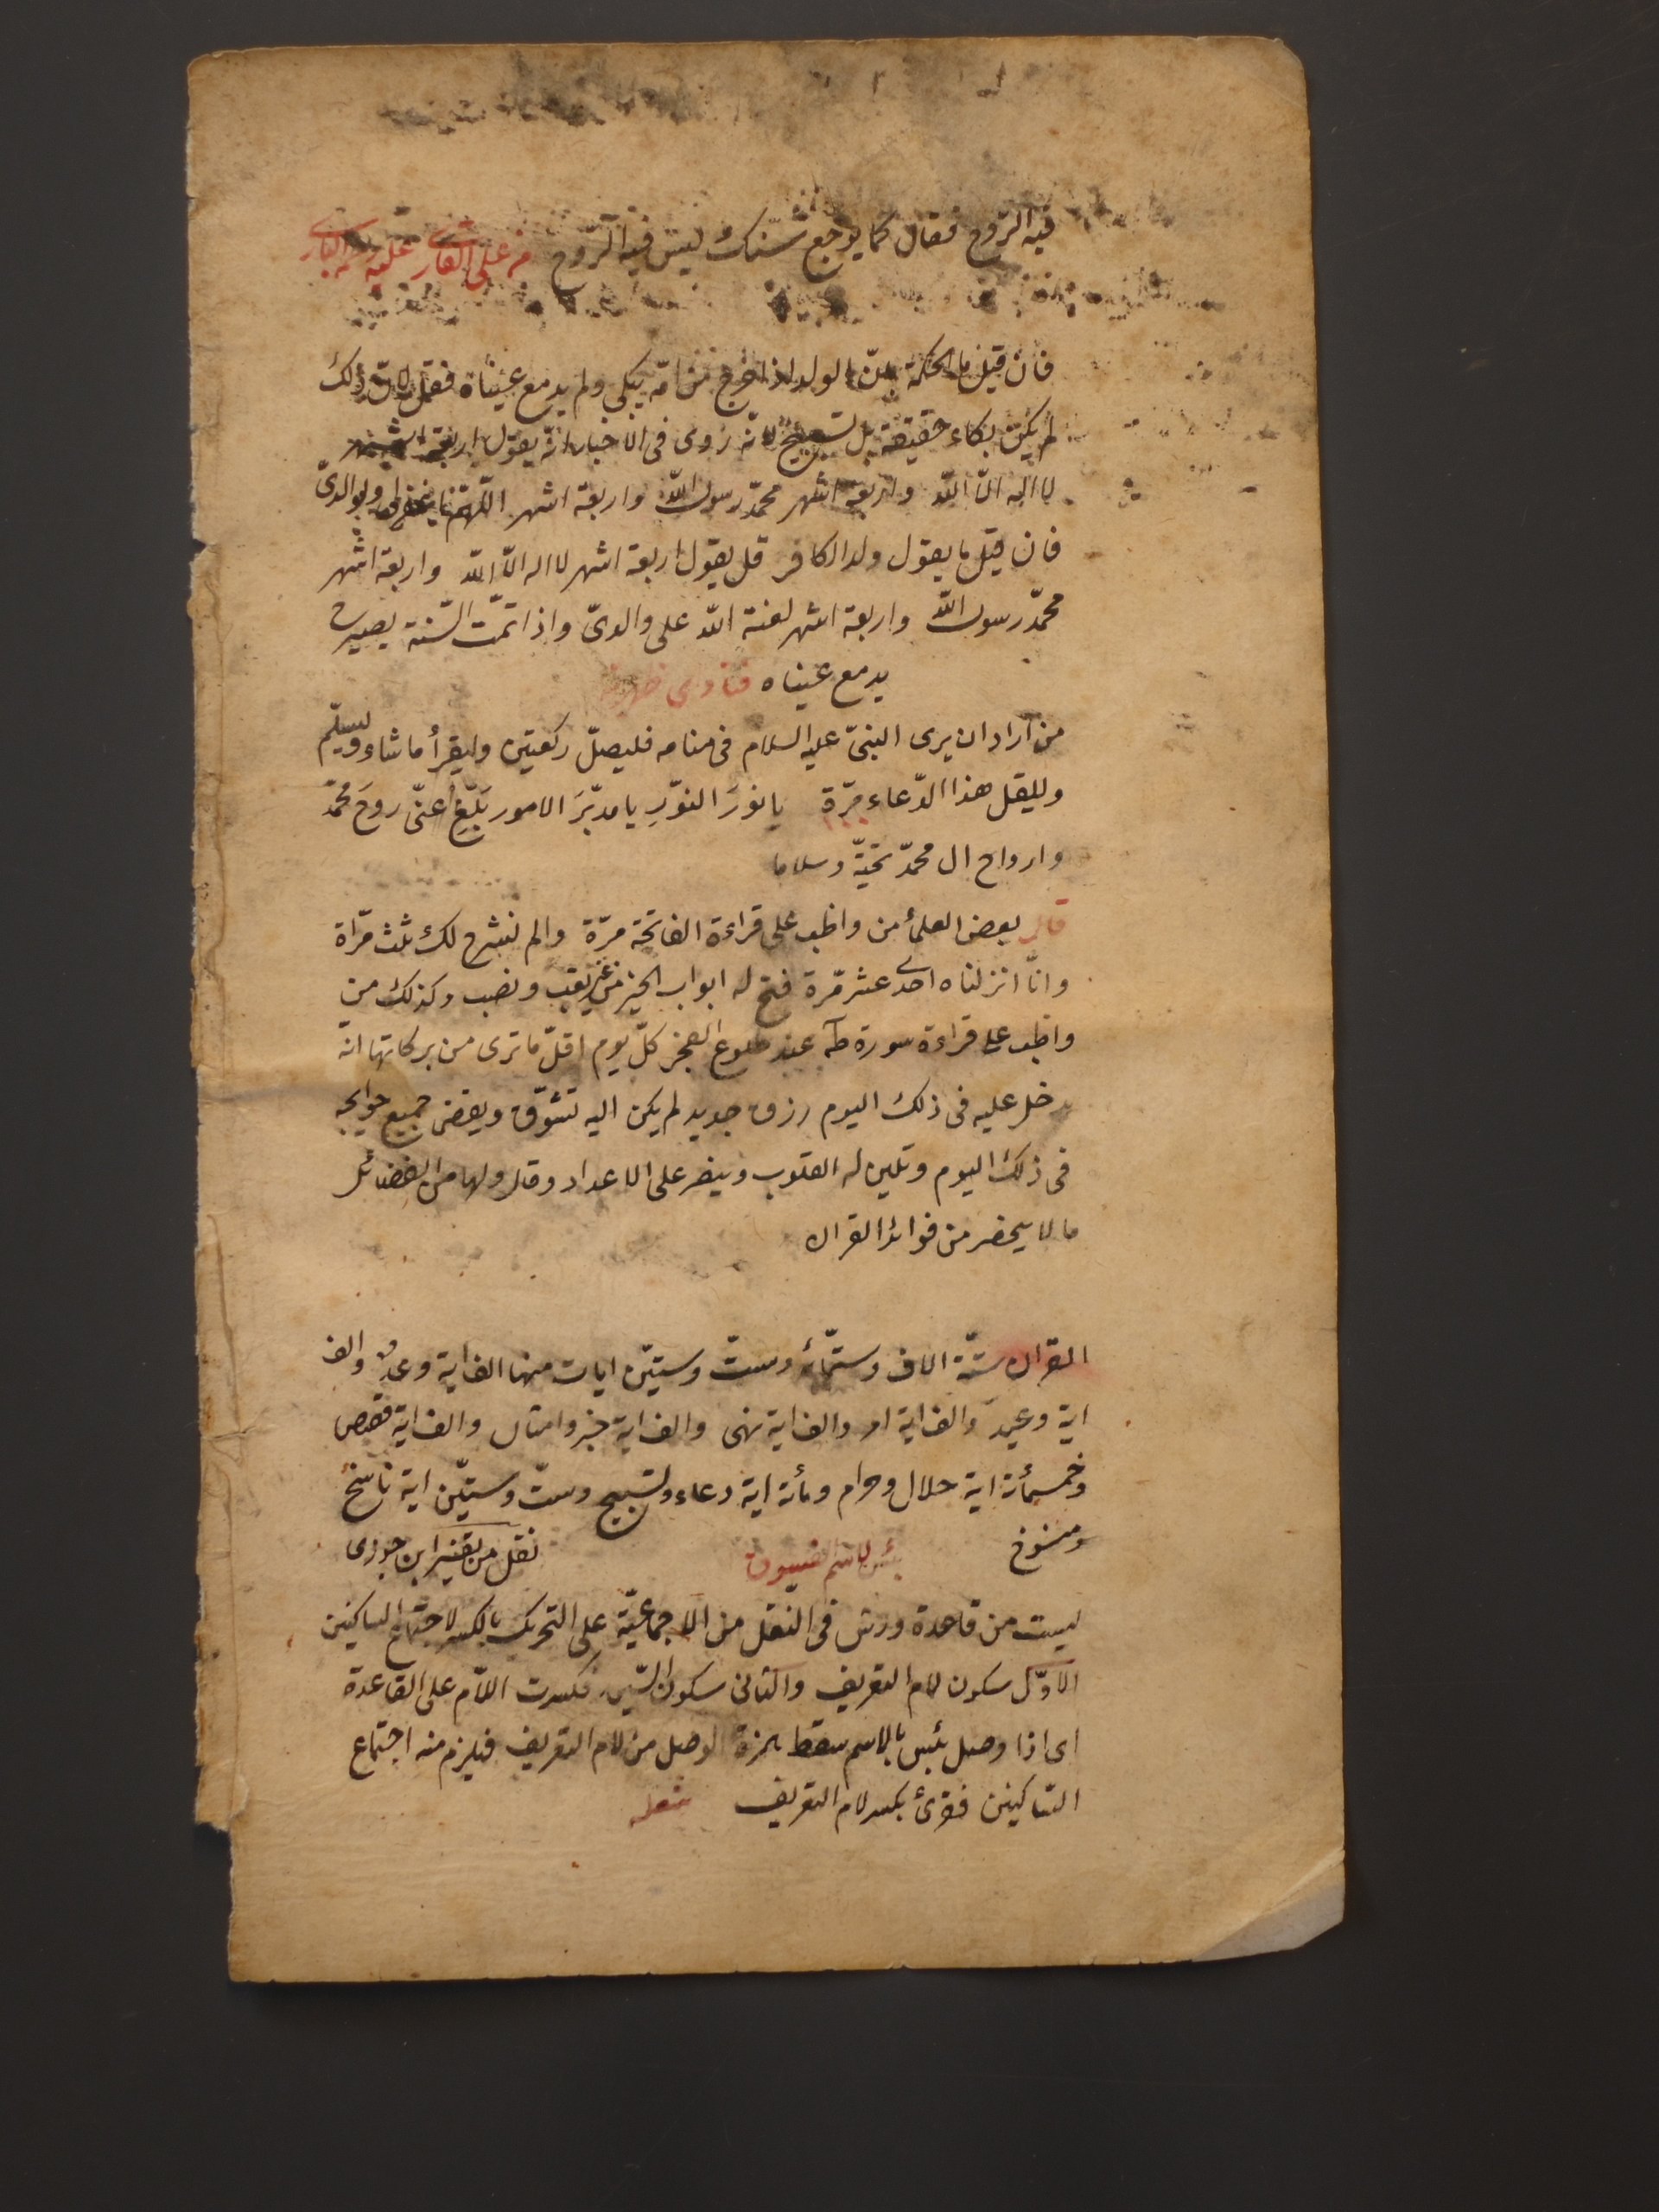 فيه الروح فقال كما يوجع سنك ليس فيه الروح من على القارى عليه رحمة البارى
فان قيل ما الحكمة بان الولد اذا خرج من امّه يبكى ولم يدمع عيناه فقل لانّ ذلك
لم يكن بكاء حقيقة بل تسبيح لانّه روى فى الاخبار انّه يقول اربعة اشهر
لا اله الّا اللّه واربعة اشهر محمّد رسول اللّه واربعة اشهر اللّهمّ اغفر لى ولوالدىّ
فان قيل ما يقول ولد الكافر قل يقول اربعة اشهر لا اله الّا اللّه واربعة اشهر
محمّد رسول اللّه واربعة اشهر لعنة اللّه على والدىّ واذا تمّت السّنة يصير
يدمع عيناه فتاوى
من اراد ان يرى النبىّ عليه السلام فى منامه فليصلّ ركعتين وليقرأ ما شاء وليسلّم
وليقل هذا الدّعاء مرّة ١٠٠ يا نورَ النّورِ يا مدبّرَ الامور بَلّغ عنّى روحَ محمّد
وارواح ال محمّد تحيّة وسلاما
قال بعض العلمأ من واظب على قراءة الفاتحة مرّة والم نشرح لك ثلث مرّاة
وانّا انزلناه احدى عشر مرّة فتح له ابواب الخير من غير تعب ونصب وكذلك من
واظب على قراءة سورة طه عند طلوع الفجر كلّ يوم اقلّ ما ترى من بركاتها انّه
يدخل عليه فى ذلك اليوم رزق جديد لم يكن اليه تشوّق ويقضى جميع حوايجه
فى ذلك اليوم وتلين له القلوب وينصر على الاعداد وقال ولها من الفضائل
ما لا يحضر من فوائد القران
القران ستّة الاف وستّمائه وستّ وستّين ايات منها الف اية وعد والف
اية وعيد والف اية امر والف اية نهى والف اية خبر وامثال والف اية قصص
وخمسمأئة اية حلال وحرام ومائة اية دعاء وتسبيح وستّ وستّين اية ناسخ
ومنسوخ بئس الاسم الفسوق نقل من تفسير ابن جوزى
ليست من قاعدة ورش فى النقل من الاجماعيّة على التحريك بالكسر لاجتماع الساكنين
الاوّل سكون لام التعريف والثانى سكون السّين فكسرت اللّام على القاعدة
اى اذا وصل بئس بالاسم سقط همزة الوصل من لام التعريف فيلزم منه اجتماع
السّاكنين فقرئ بكسر لام التعريف شعله